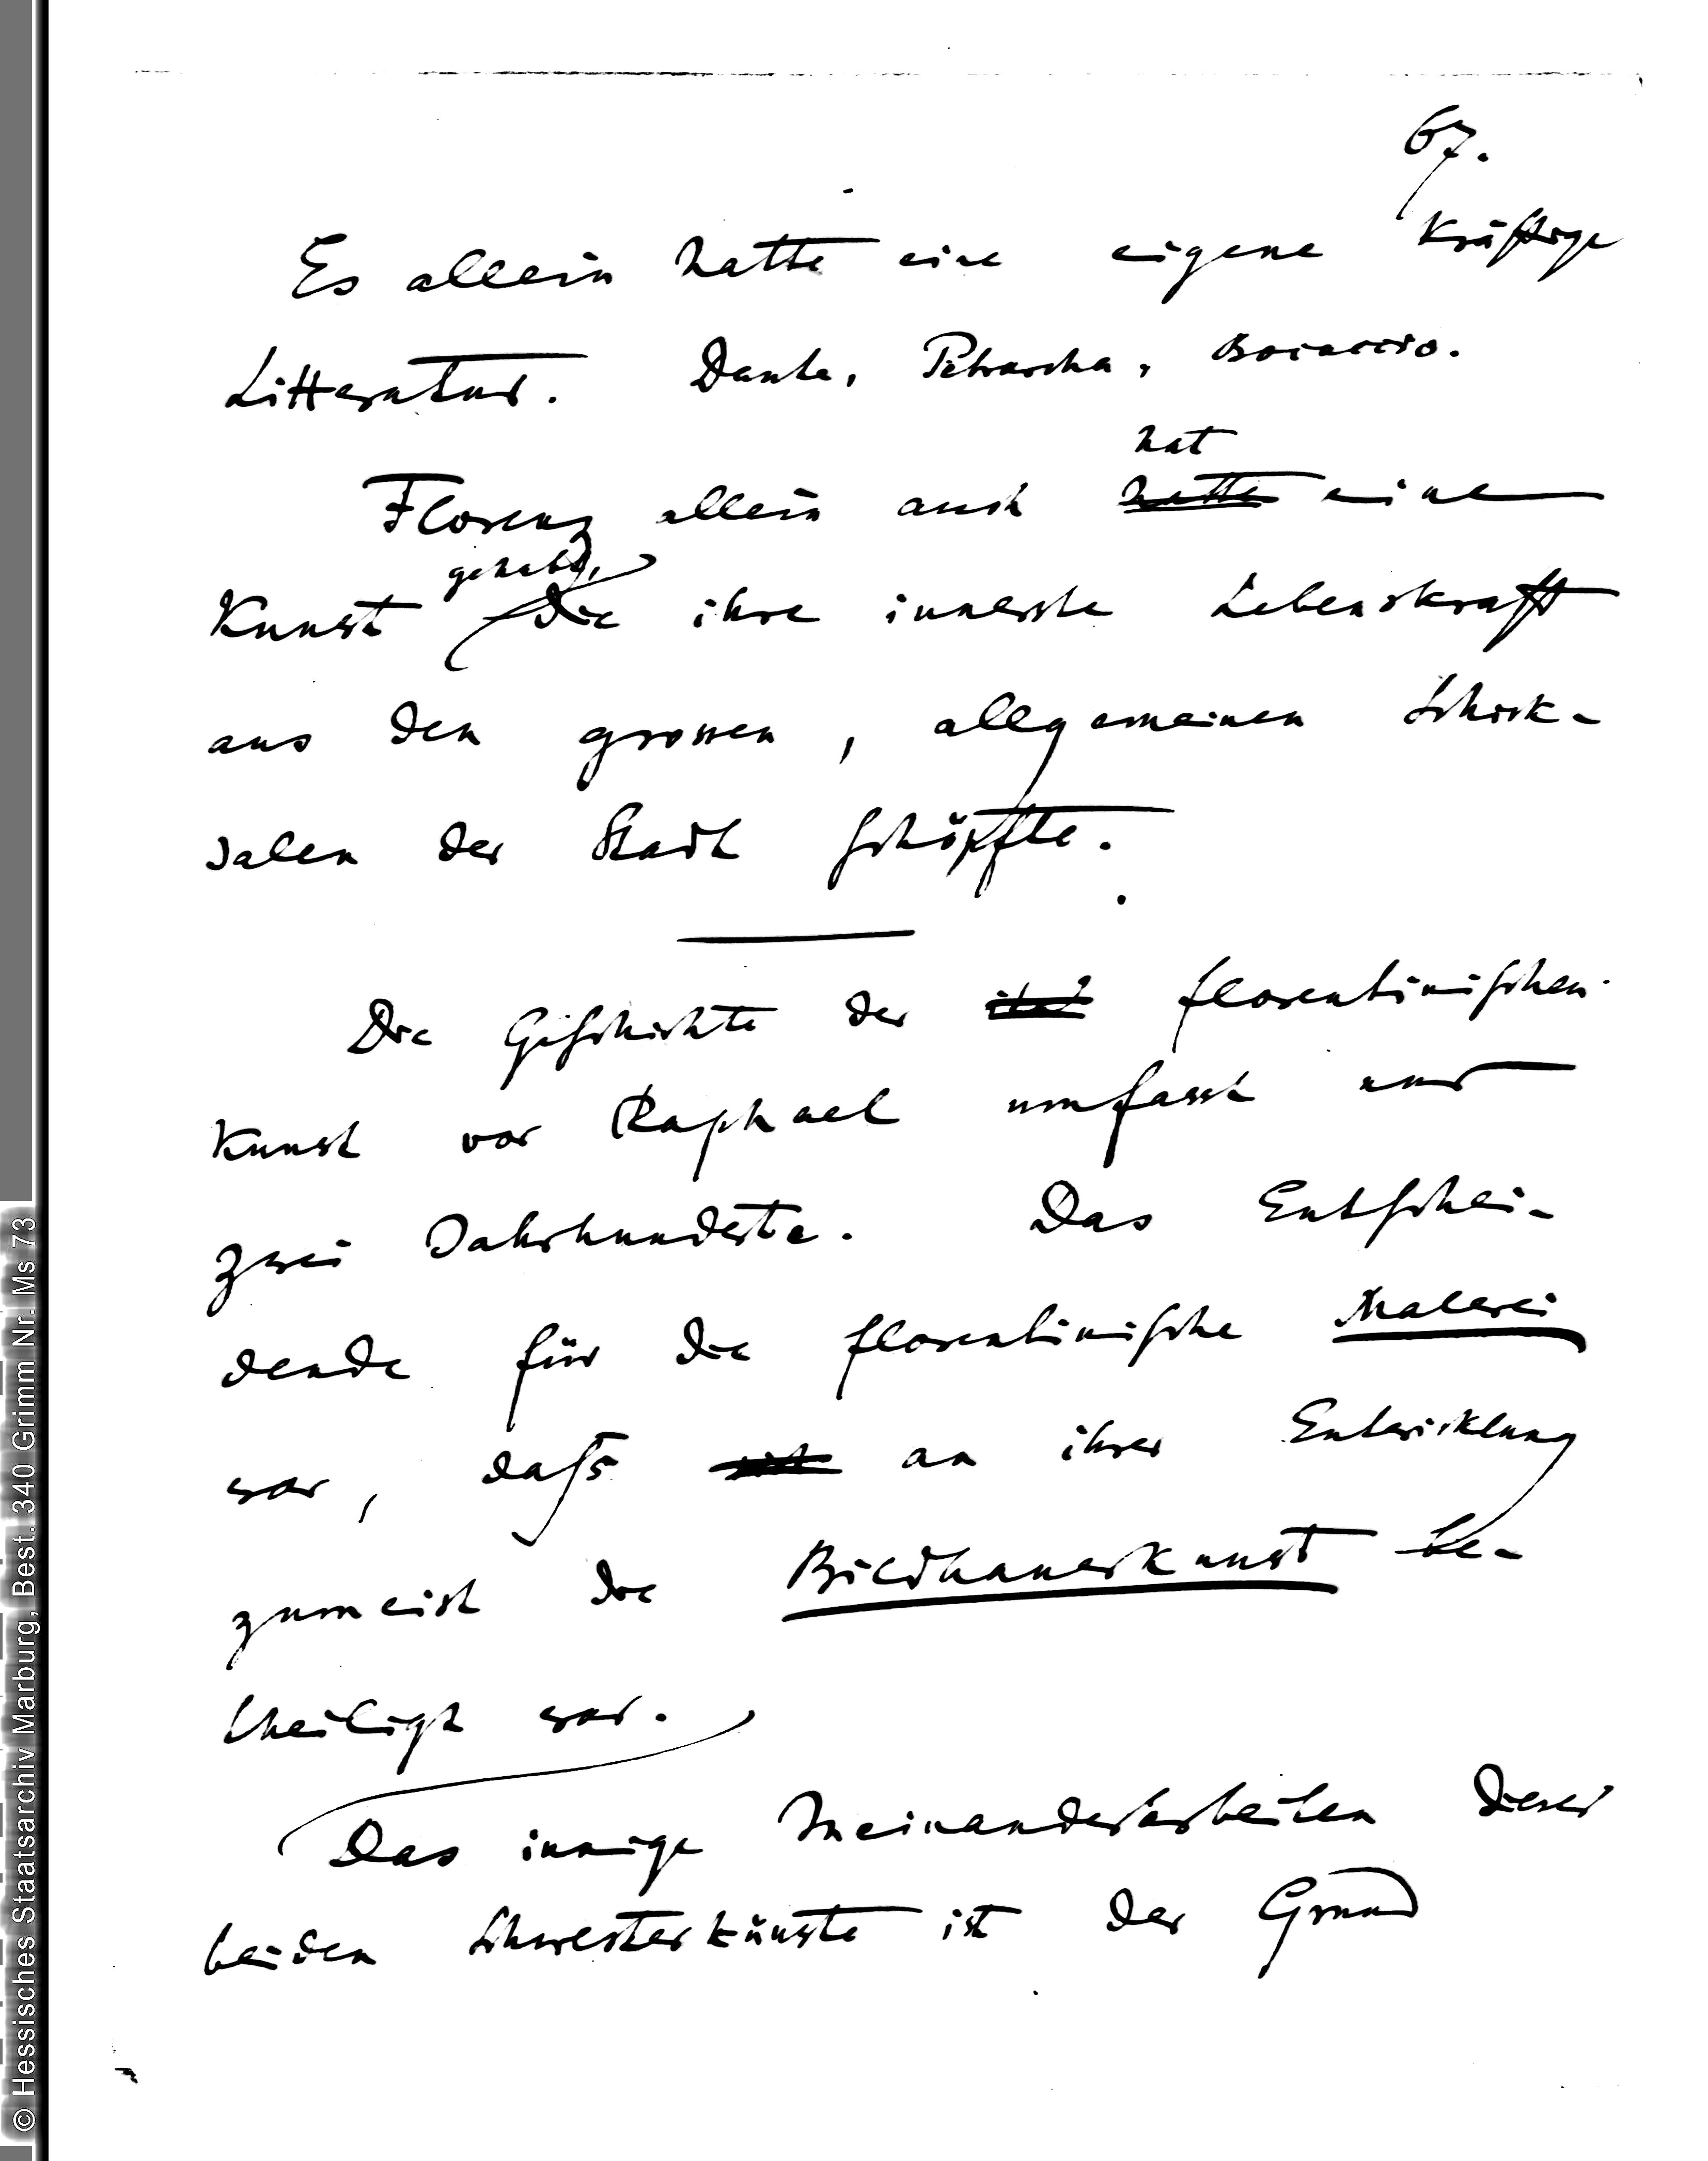 67.
Es allein hatte eine eigene kräftige
Litteratur. Dante, Petrarcha, Bocaccio.
hat
Florenz allein auch hatte eine
gehabt,
Kunst die ihre innerste Lebenskraft
aus den grossen, allgemeinen Schick-
salen der Stadt schöpfte.
Die Geschichte der florentinischen
Kunst vor Raphael umfasst nur
zwei Jahrhunderte. Das Entschei-
dende für die florentinische Malerei
war, daß an ihrer Entwicklung
zumeist die Bildhauerkunst be-
theiligt war.
Das innige Ineinanderarbeiten dieser
beiden Schwesterkünste ist der Grund
© Hessisches Staatsarchiv Marburg, Best. 340 Grimm Nr. Ms 73